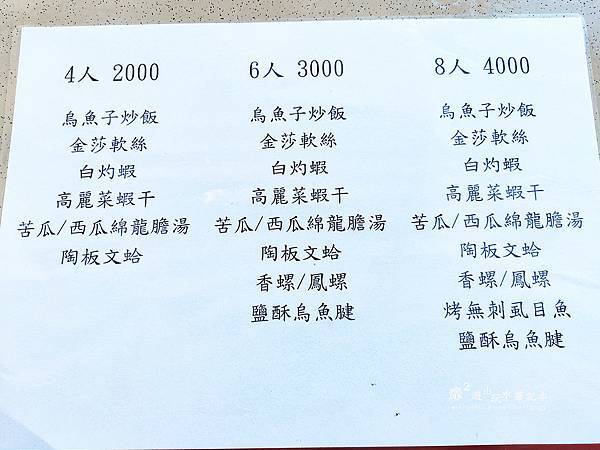 4人 2000
烏魚子炒飯
金莎軟絲
白灼蝦
高麗菜蝦干
苦瓜/西瓜綿龍膽湯
陶板文蛤
6人 3000
烏魚子炒飯
金莎軟絲
白灼蝦
高麗菜蝦干
苦瓜/西瓜綿龍膽湯
陶板文蛤
香螺/鳳螺
鹽酥烏魚腱
8人 4000
烏魚子炒飯
金莎軟絲
白灼蝦
高麗菜蝦干
苦瓜/西瓜綿龍膽湯
陶板文蛤
香螺/鳳螺
烤無刺虱目魚
鹽酥烏魚腱